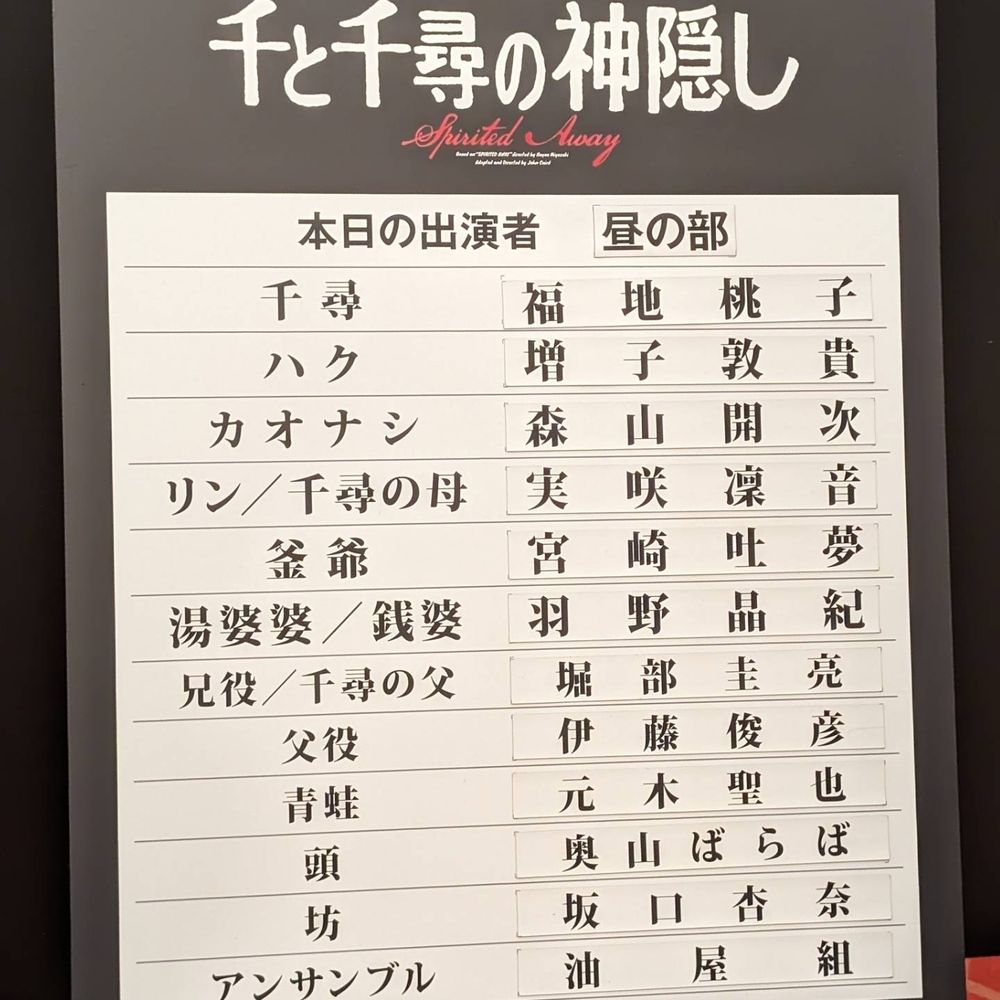 千と千尋の神隠し
Spirited Away
Based on "SPIRITED AWAY" directed by Hayao Miyazaki
Adapted and Directed by John Caird
本日の出演者 昼の部
千尋 福地桃子
ハク 増子敦貴
カオナシ 森山開次
リン／千尋の母 実咲凜音
釜爺 宮崎吐夢
湯婆婆／銭婆 羽野晶紀
兄役／千尋の父 堀部圭亮
父役 伊藤俊彦
青蛙 元木聖也
頭 奥山ばらば
坊 坂口杏奈
アンサンブル 油屋組